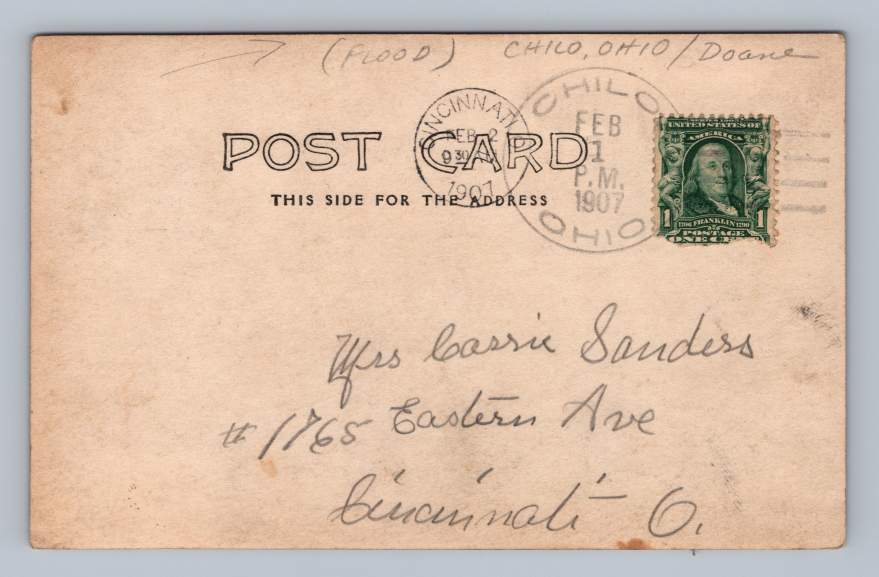 (FLOOD) CHILO, OHIO / Doane
POST CARD
THIS SIDE FOR THE ADDRESS
CINCINNATI
FEB 2
930
1907
CHILO
FEB
1
P.M.
1907
OHIO
UNITED STATES OF
AMERICA
1 1706 FRANKLIN 1790 1
POSTAGE
ONE CE
Mrs Carrie Sanders
# 1765 Eastern Ave
Cincinnati O.